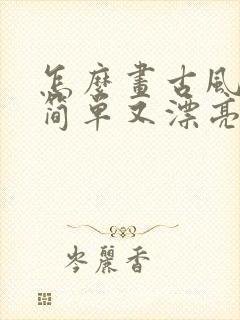 怎麼畫古風
簡單又漂亮
岑麗香